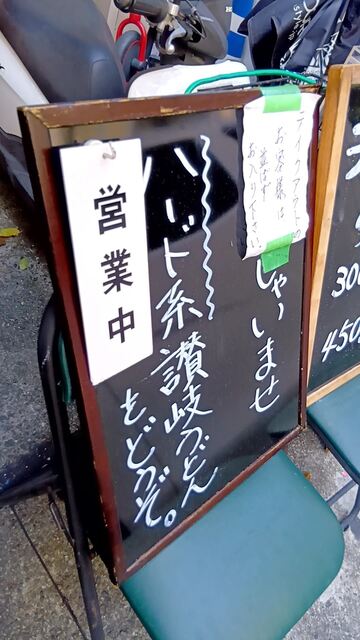 テイクアウトの
お客様は
並ばず
お入りください
しゃいませ
ハード系讃岐うどん
をどうぞ。
営業中
300
450